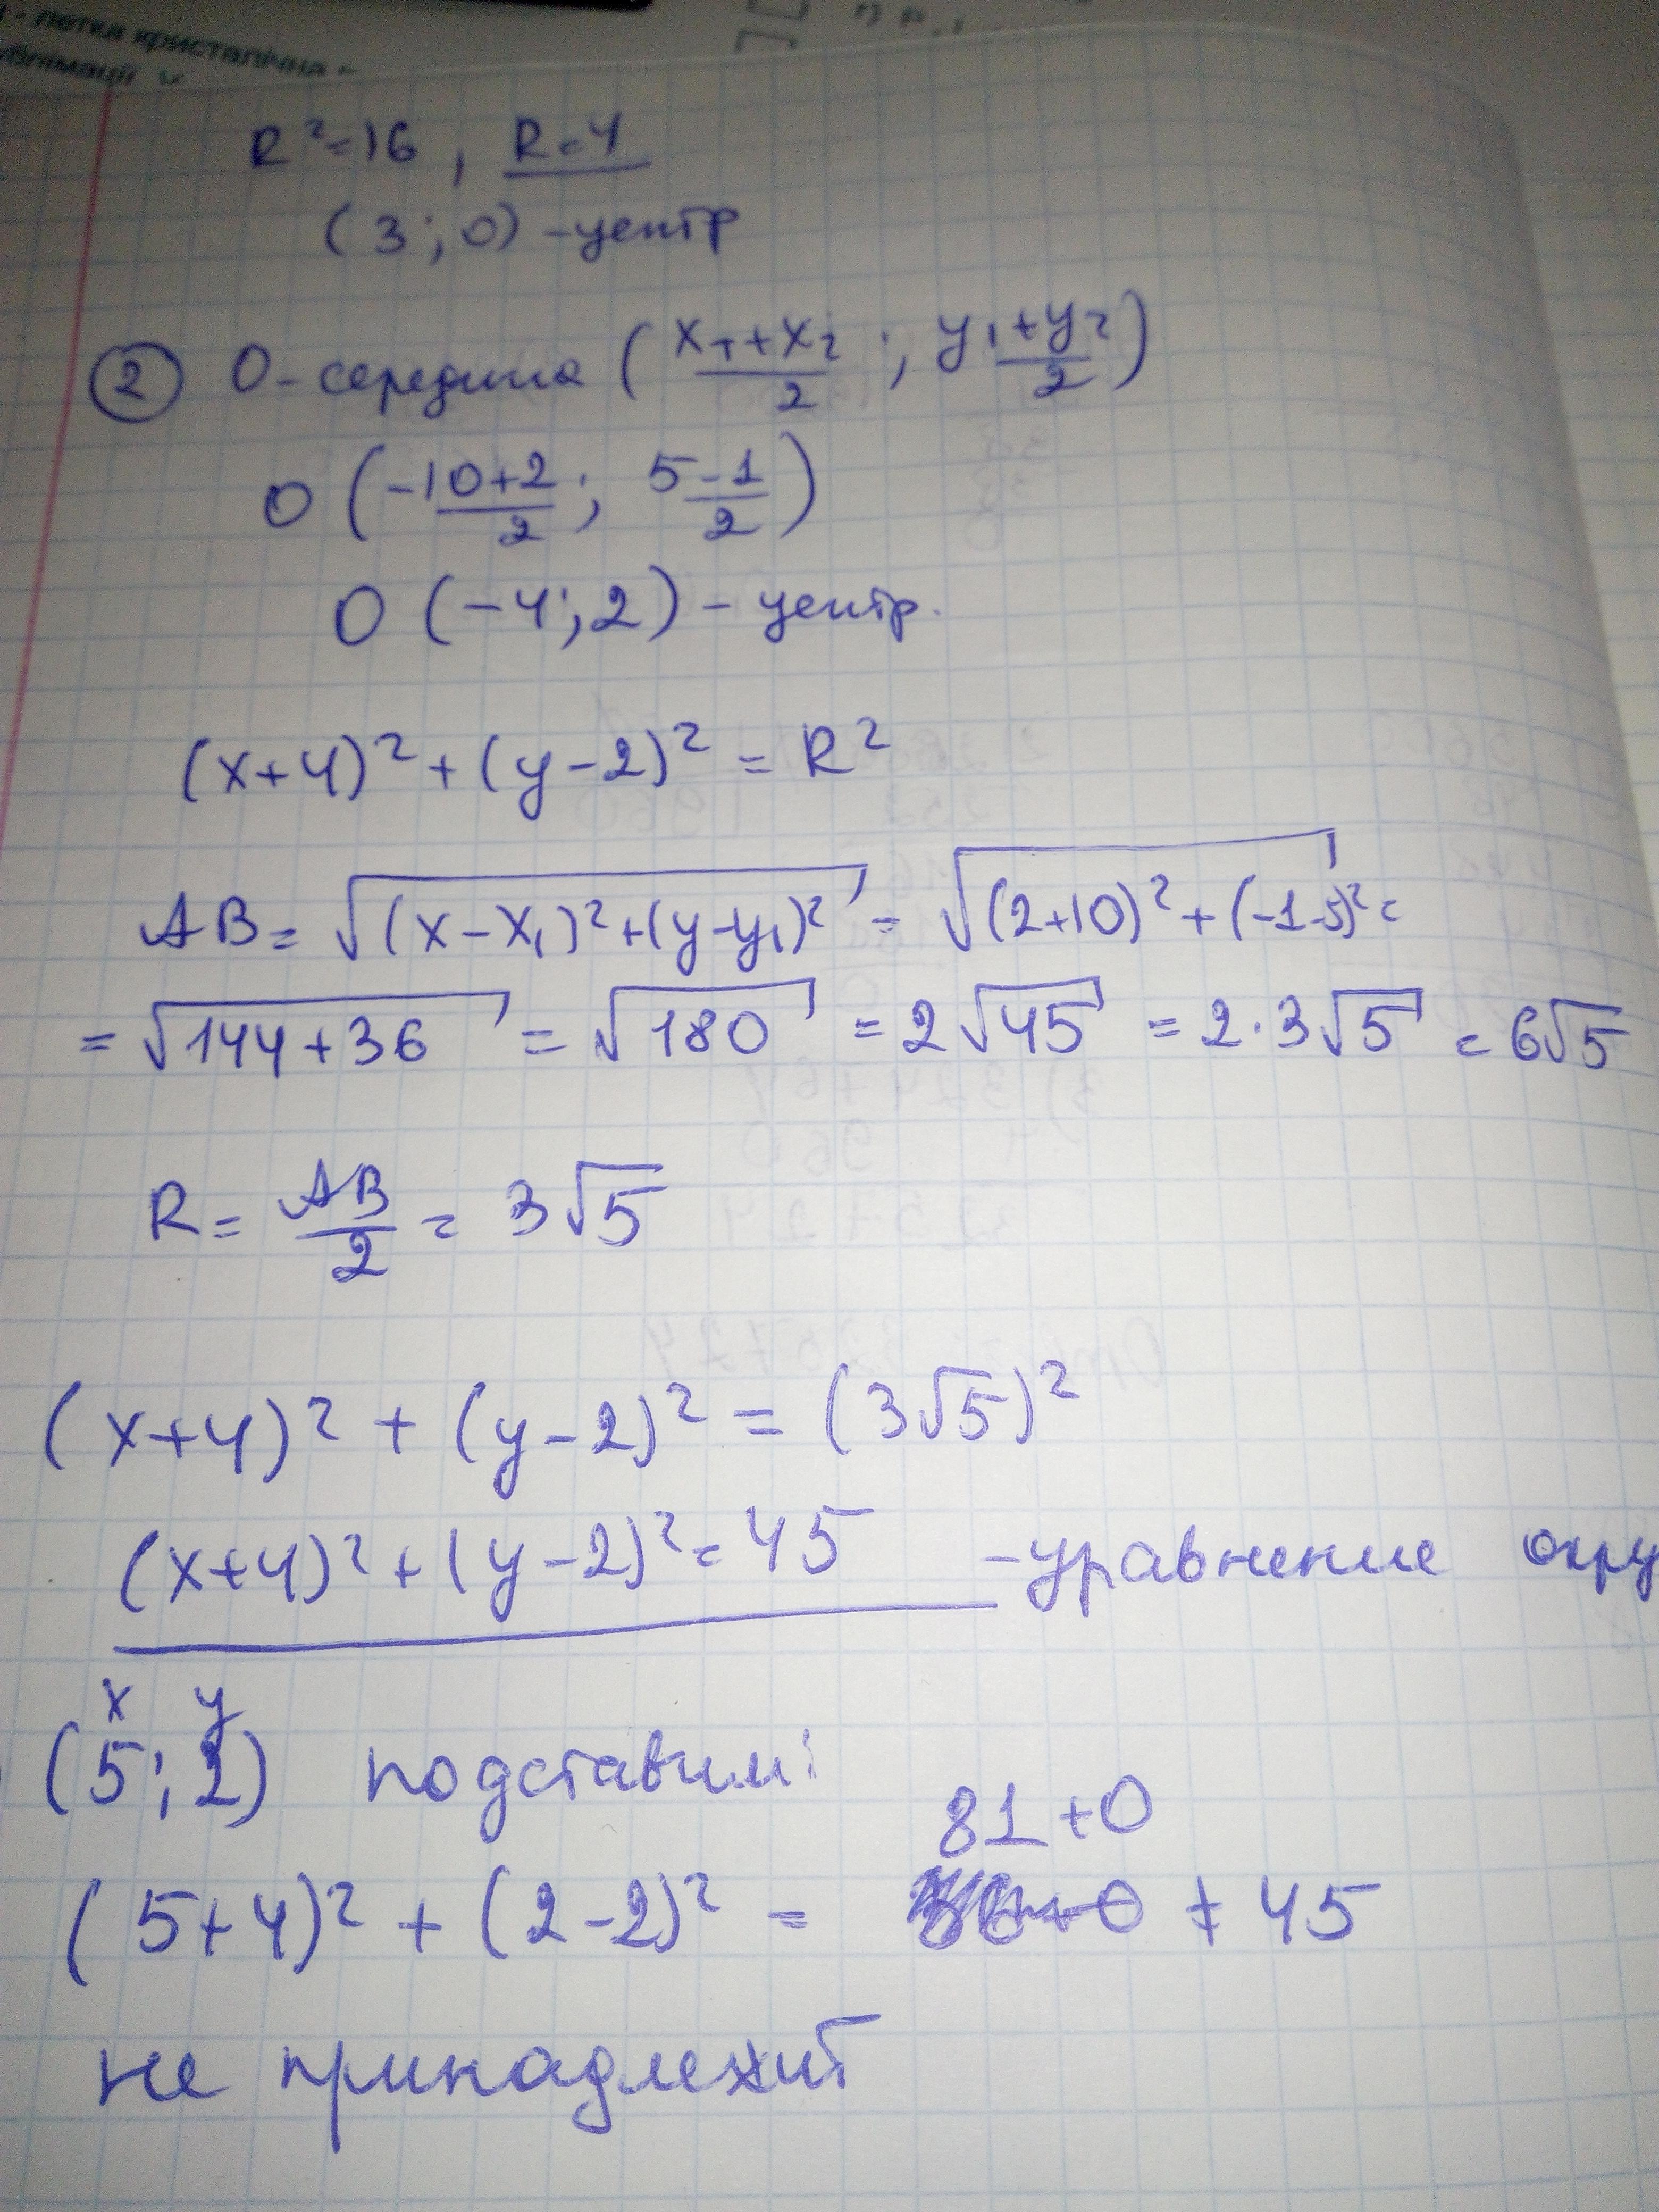 - ґратка кристалічна -
R²=16, R=4
(3; 0) - центр
② O - середина (x₁+x₂/2; y₁+y₂/2)
O (-10+2/2; 5-1/2)
O (-4; 2) - центр.
(x+4)² + (y-2)² = R²
AB = √(x-x₁)²+(y-y₁)² = √(2+10)²+(-1-5)² =
= √144+36 = √180 = 2√45 = 2·3√5 = 6√5
R = AB/2 = 3√5
(x+4)² + (y-2)² = (3√5)²
(x+4)² + (y-2)² = 45 - уравнение окру
x y
(5; 2) подставим:
81+0
(5+4)² + (2-2)² = ≠ 45
не принадлежит